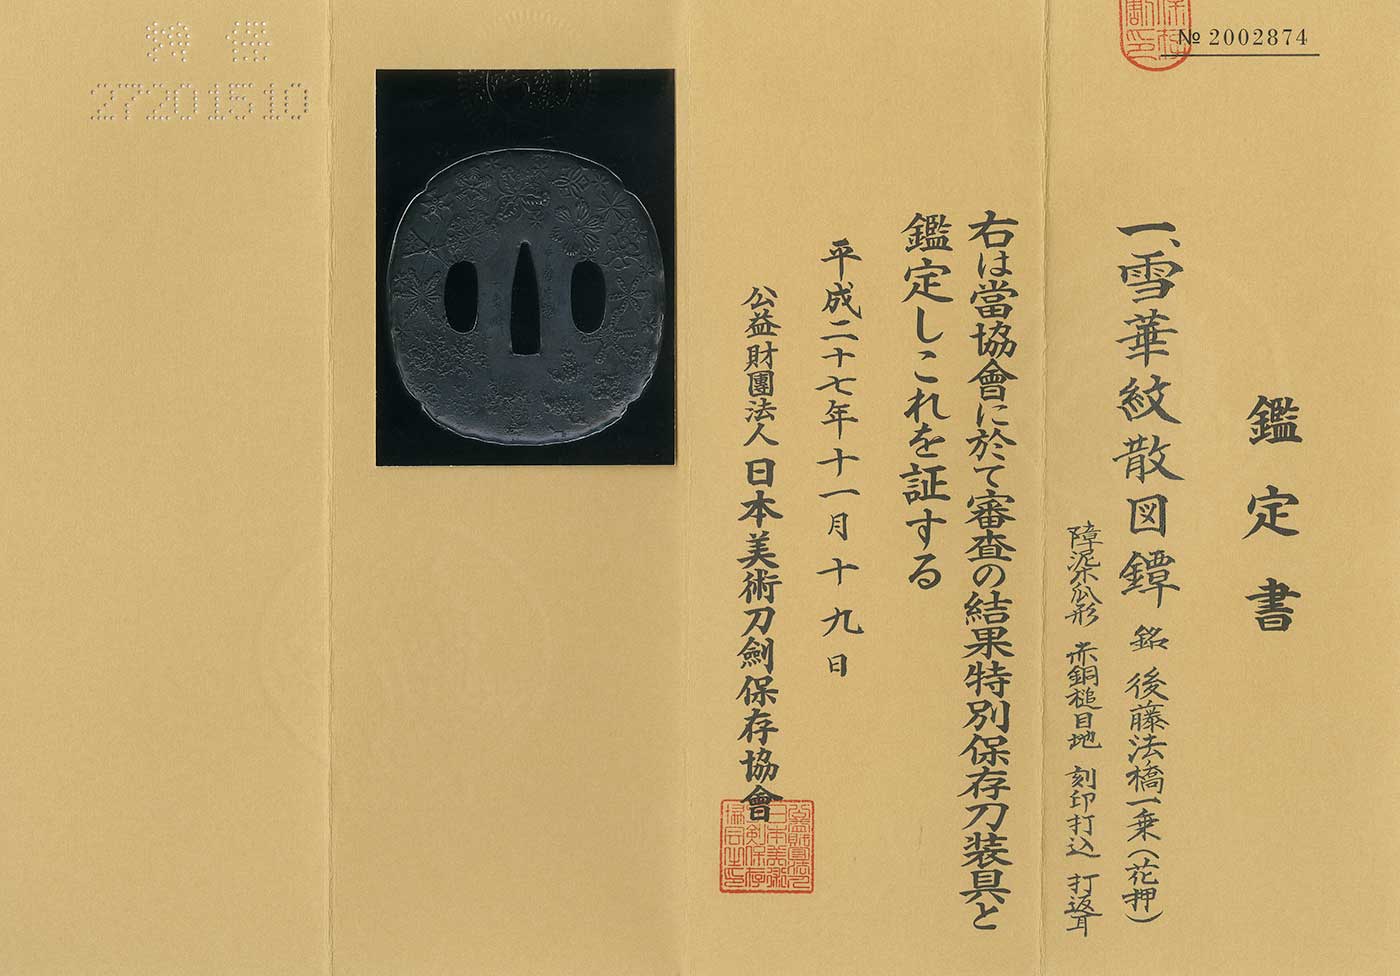 № 2002874
鑑定書
一、雪華紋散図鐔 銘 後藤法橋一乗(花押)
障泥木瓜形 赤銅槌目地 刻印打込 打返耳
右は當協會に於て審査の結果特別保存刀装具と
鑑定しこれを証する
平成二十七年十一月十九日
公益財團法人 日本美術刀劍保存協會
特 保
27201510